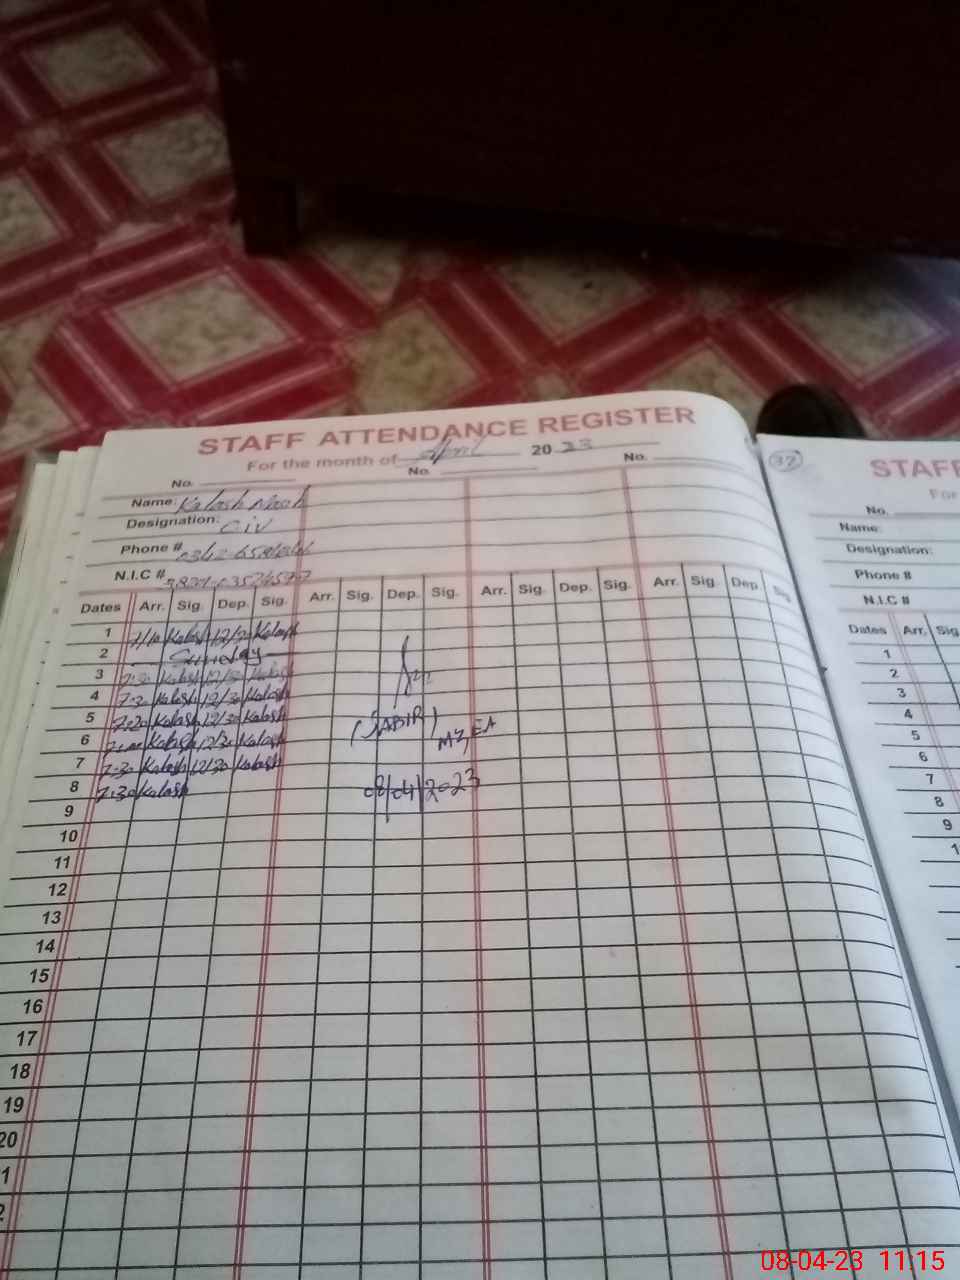 STAFF ATTENDANCE REGISTER
For the month of April 2023
No. No. No.
Name: Kalash
Designation: CIV
Phone #
N.I.C #
Dates Arr. Sig. Dep. Sig. Arr. Sig. Dep. Sig. Arr. Sig. Dep. Sig. Arr. Sig. Dep. Sig.
1 Kalash Kalash
2 Sunday
3 7:30 Kalash 12/30 Kalash
4 7:30 Kalash 12/30 Kalash
5 7:20 Kalash 12/30 Kalash
6 Kalash 12/30 Kalash
7 7:30 Kalash 12/30 Kalash
8 7:30 Kalash
(SABIR)
MZ, EA
08/04/2023
9
10
11
12
13
14
15
16
17
18
19
20
1
2
37
STAFF
For
No.
Name:
Designation:
Phone #
N.I.C #
Dates Arr. Sig.
1
2
3
4
5
6
7
8
9
1
08-04-23 11:15